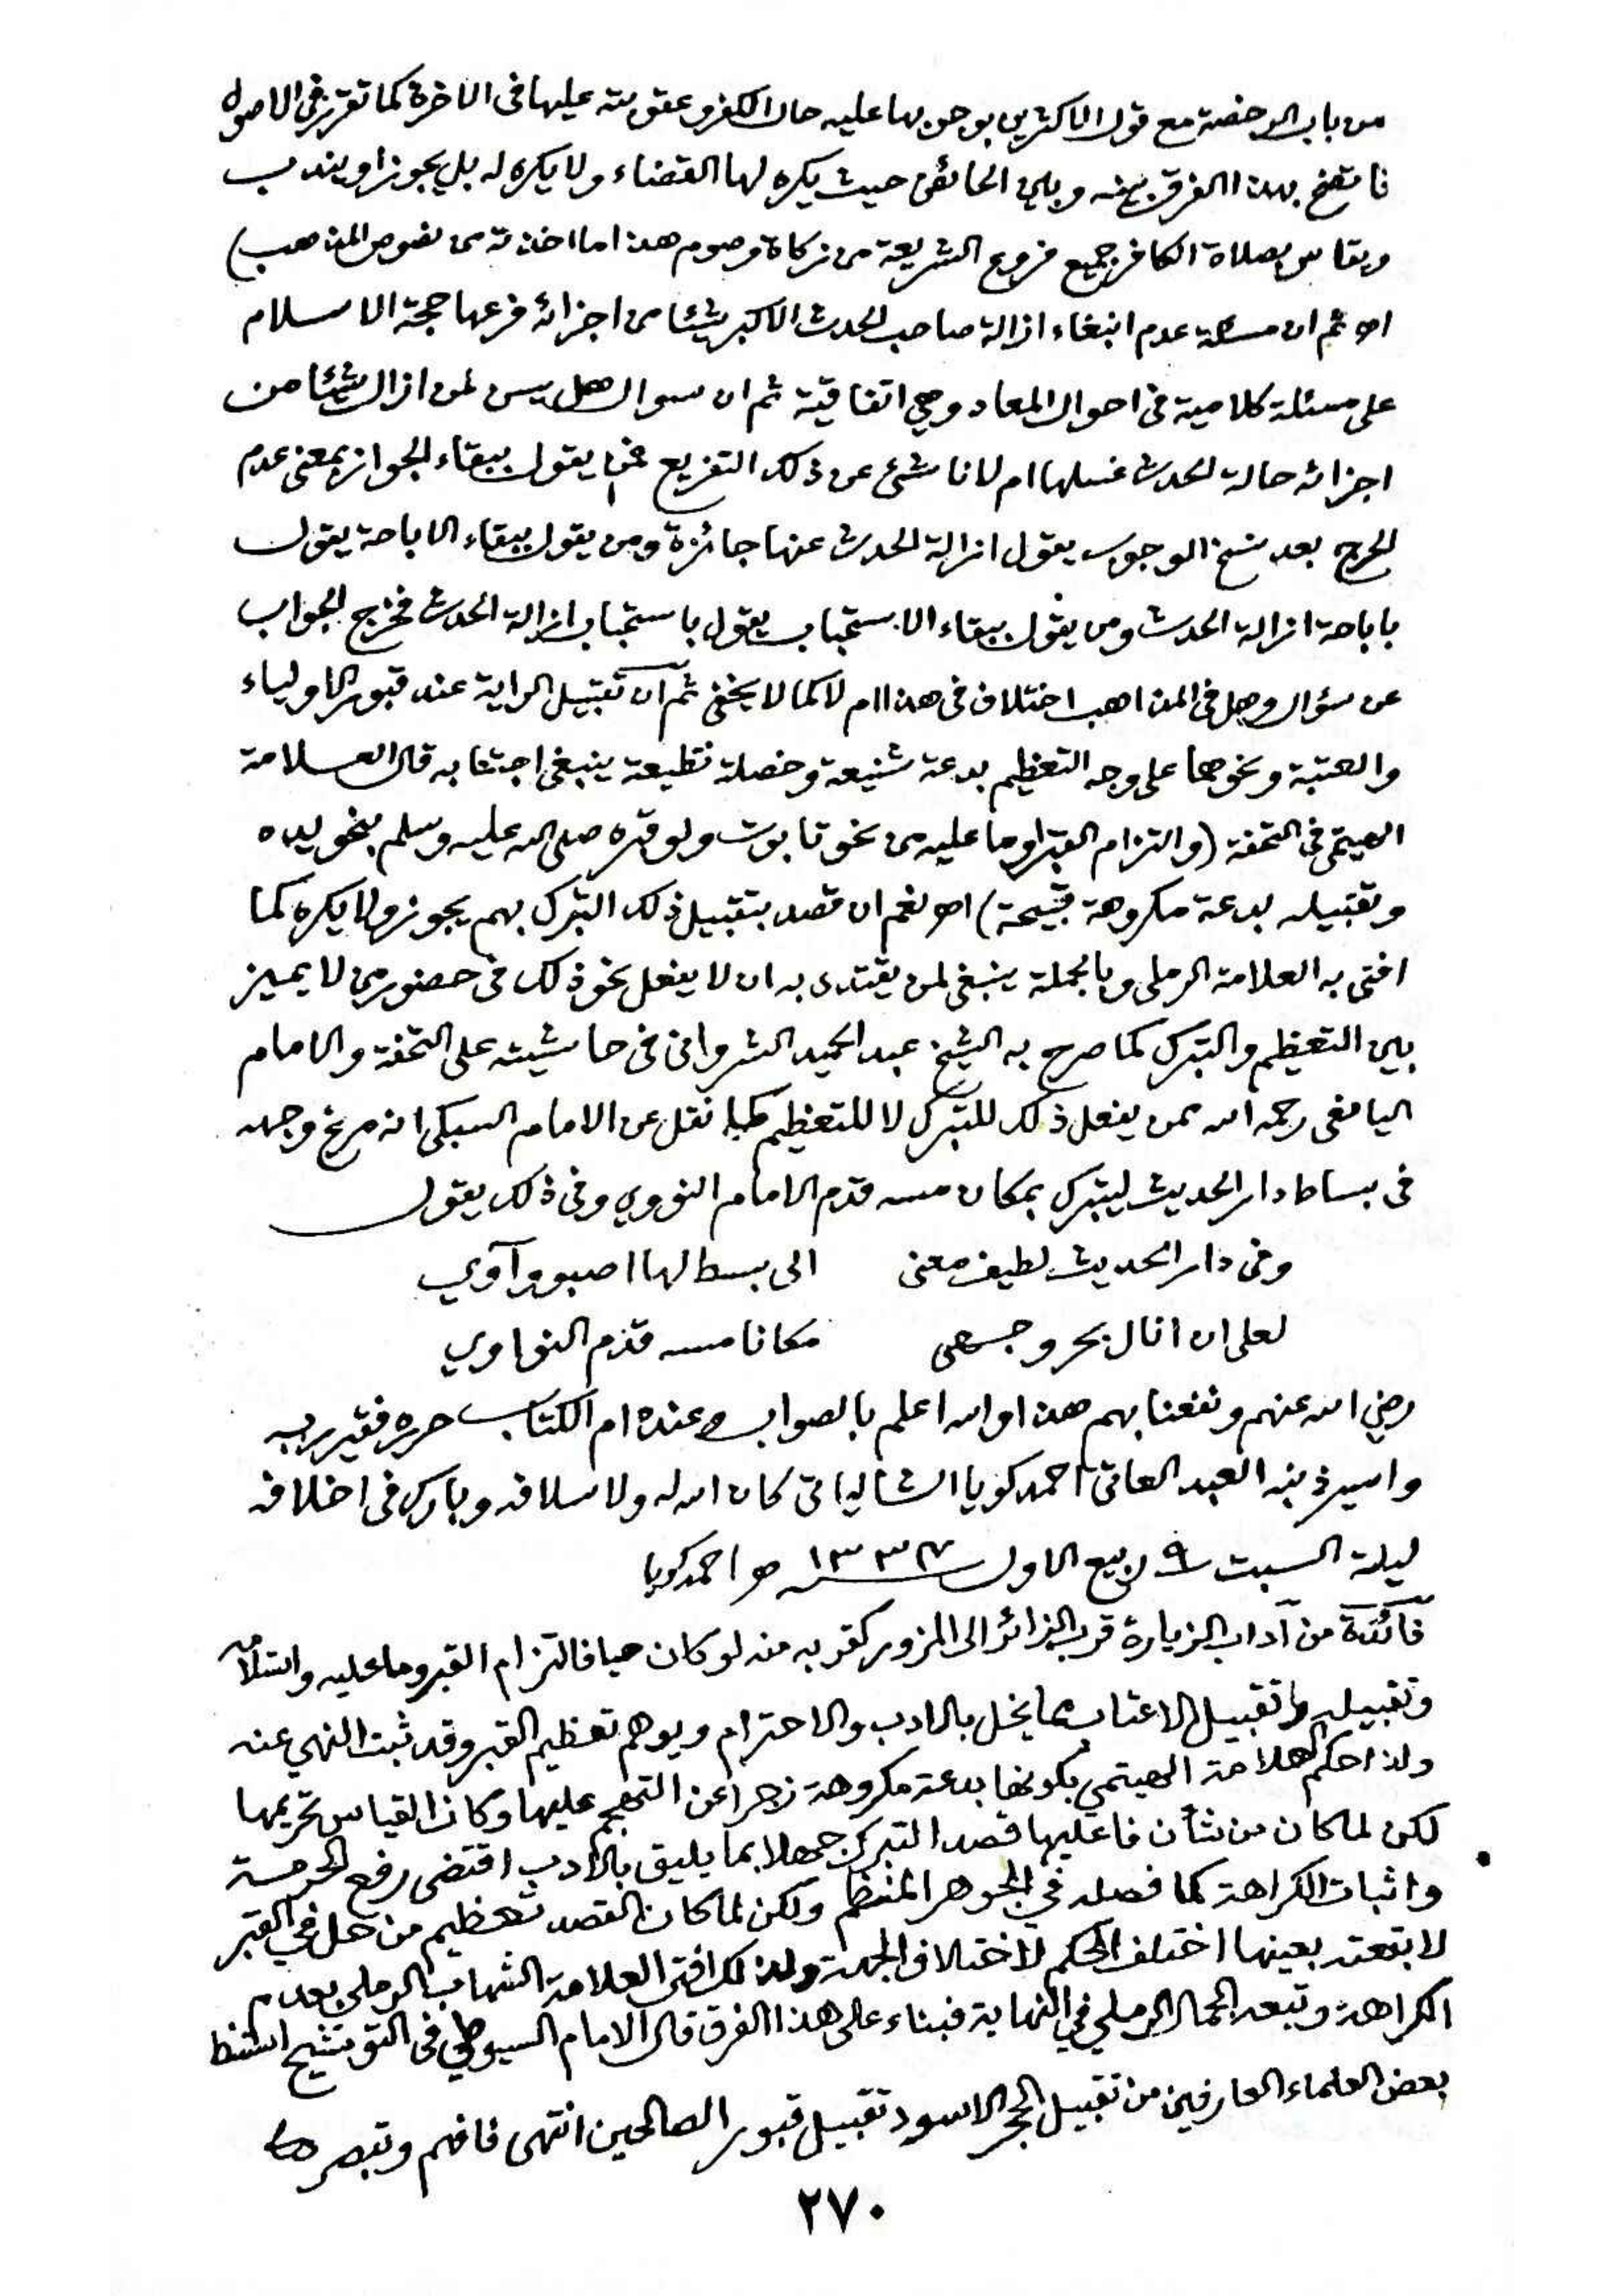 من باب الرخصة مع قول الاكثرين بوجوبها عليه حال الكفر وعقوبته عليها فى الاخرة كما تقرر فى الاصول
فاتضح بهذا الفرق بينه وبين الحائض حيث يكره لها القضاء ولا يكره له بل يجوز او يندب
ويقاس بصلاة الكافر جميع فروع الشريعة من زكاة وصوم هذا ما اخذته من نصوص المذهب)
اه ثم ان مسئلة عدم انبغاء ازالة صاحب الحدث الاكبر شيئا من اجزائه فرعها حجة الاسلام
على مسئلة كلامية فى احوال المعاد وهي اتفاقية ثم ان سوال هل يسن لمن ازال شيئا من
اجزائه حالة الحدث غسلها ام لا ناشئ عن ذلك التفريع فمن يقول ببقاء الجواز بمعنى عدم
الحرج بعد نسخ الوجوب يقول ازالة الحدث عنها جائزة ومن يقول ببقاء الاباحة يقول
باباحة ازالة الحدث ومن يقول ببقاء الاستحباب يقول باستحباب ازالة الحدث فخرج الجواب
عن سؤال وهل فى المذاهب اختلاف فى هذا ام لا كما لا يخفى ثم ان تقبيل الراية عند قبور الاولياء
والعتبة ونحوهما على وجه التعظيم بدعة شنيعة وخصلة فظيعة ينبغى اجتنابه قال العلامة
الهيتمى فى التحفة (والتزام القبر او ما عليه من نحو تابوت ولو قبره صلى الله عليه وسلم بنحو يده
وتقبيله بدعة مكروهة قبيحة) اه نعم ان قصد بتقبيل ذلك التبرك بهم يجوز ولا يكره كما
افتى به العلامة الرملى وبالجملة ينبغى لمن يقتدى به ان لا يفعل نحو ذلك فى حضور من لا يميز
بين التعظيم والتبرك كما صرح به الشيخ عبد الحميد الشروانى فى حاشيته على التحفة والامام
اليافعى رحمه الله ممن يفعل ذلك للتبرك لا للتعظيم كما نقل عن الامام السبكى انه مرغ وجهه
فى بساط دار الحديث ليتبرك بمكان مسه قدم الامام النووي وفى ذلك يقول
وفى دار الحديث لطيف معنى الى بسط لها اصبو وآوي
لعلى ان انال بحر وجهى مكانا مسه قدم النواوي
رضي الله عنهم ونفعنا بهم هذا والله اعلم بالصواب وعنده ام الكتاب حرره فقير ربه
واسير ذنبه العبد العاتى احمد كويا الشالياتى كان الله له ولاسلافه وبارك فى اخلافه
ليلة السبت ٩ ربيع الاول ١٣٣٧ هـ احمد كويا
فائدة من آداب الزيارة قرب الزائر الى المزور كقربه منه لو كان حيا فالتزام القبر وما عليه واستلامه
وتقبيله وتقبيل الاعتاب مما يخل بالادب والاحترام ويوهم تعظيم القبر وقد ثبت النهي عنه
ولذا حكم العلامة الهيتمي بكونها بدعة مكروهة زجرا عن التهجم عليها وكان القياس تحريمها
لكن لما كان من شأن فاعليها قصد التبرك جهلا بما يليق بالادب اقتضى رفع الحرمة
واثبات الكراهة كما فصله في الجوهر المنظم ولكن لما كان القصد تعظيم من حل في القبر
لا بقعته بعينها اختلف الحكم لاختلاف الجهة ولذلك افتى العلامة الشهاب الرملى بعدم
الكراهة وتبعه الجمال الرملي في النهاية فبناء على هذا الفرق قال الامام السيوطي فى التوشيح استنبط
بعض العلماء العارفين من تقبيل الحجر الاسود تقبيل قبور الصالحين انتهى فافهم وتبصر
٢٧٠